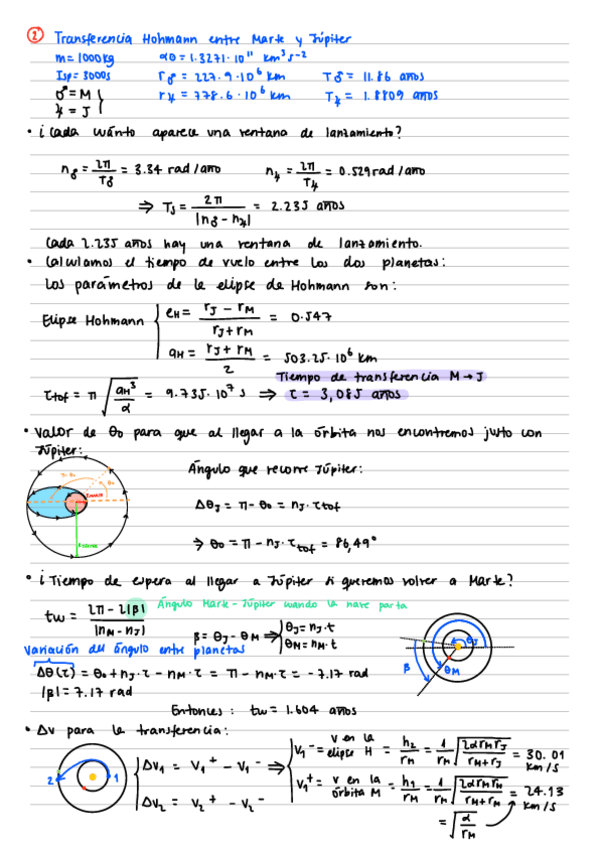 ② Transferencia Hohmann entre Marte y Júpiter
m = 1000 kg αΘ = 1.3271·10¹¹ km³ s⁻²
Isp = 3000s r♂ = 227.9·10⁶ km T♂ = 11.86 años
♂ = M r♃ = 778.6·10⁶ km T♃ = 1.8809 años
♃ = J
• ¿Cada cuánto aparece una ventana de lanzamiento?
n♂ = 2π/T♂ = 3.34 rad/año n♃ = 2π/T♃ = 0.529 rad/año
⇒ Ts = 2π/|n♂ - n♃| = 2.235 años
Cada 2.235 años hay una ventana de lanzamiento.
• Calculamos el tiempo de vuelo entre los dos planetas:
Los parámetros de la elipse de Hohmann son:
Elipse Hohmann { eH = (rJ - rM)/(rJ + rM) = 0.547
aH = (rJ + rM)/2 = 503.25·10⁶ km
Tiempo de transferencia M → J
τtof = π √(aH³/α) = 9.735·10⁷ s ⇒ τ = 3,085 años
• Valor de θ0 para que al llegar a la órbita nos encontremos justo con
Júpiter:
Ángulo que recorre Júpiter:
ΔθJ = π - θ0 = nJ·τtof
⇒ θ0 = π - nJ·τtof = 86,49°
• ¿Tiempo de espera al llegar a Júpiter si queremos volver a Marte?
Ángulo Marte-Júpiter cuando la nave parta
tw = (2π - 2|β|)/|nM - nJ| β = θJ - θM ⇒ { θJ = nJ·t
θM = nM·t
Variación del ángulo entre planetas
Δθ(τ) = θ0 + nJ·τ - nM·τ = π - nM·τ = -7.17 rad
|β| = 7.17 rad
β θJ θM
Entonces: tw = 1.604 años
• Δv para la transferencia:
2 1
{ ΔV1 = V1⁺ - V1⁻ ⇒ { V1⁻ = v en la elipse H = h2/rM = 1/rM √(2αrMrJ/(rM + rJ)) = 30.01 km/s
V1⁺ = v en la órbita M = h1/rM = 1/rM √(2αrMrM/(rM + rM)) = 24.13 km/s
ΔV2 = V2⁺ - V2⁻
= √(α/rM)